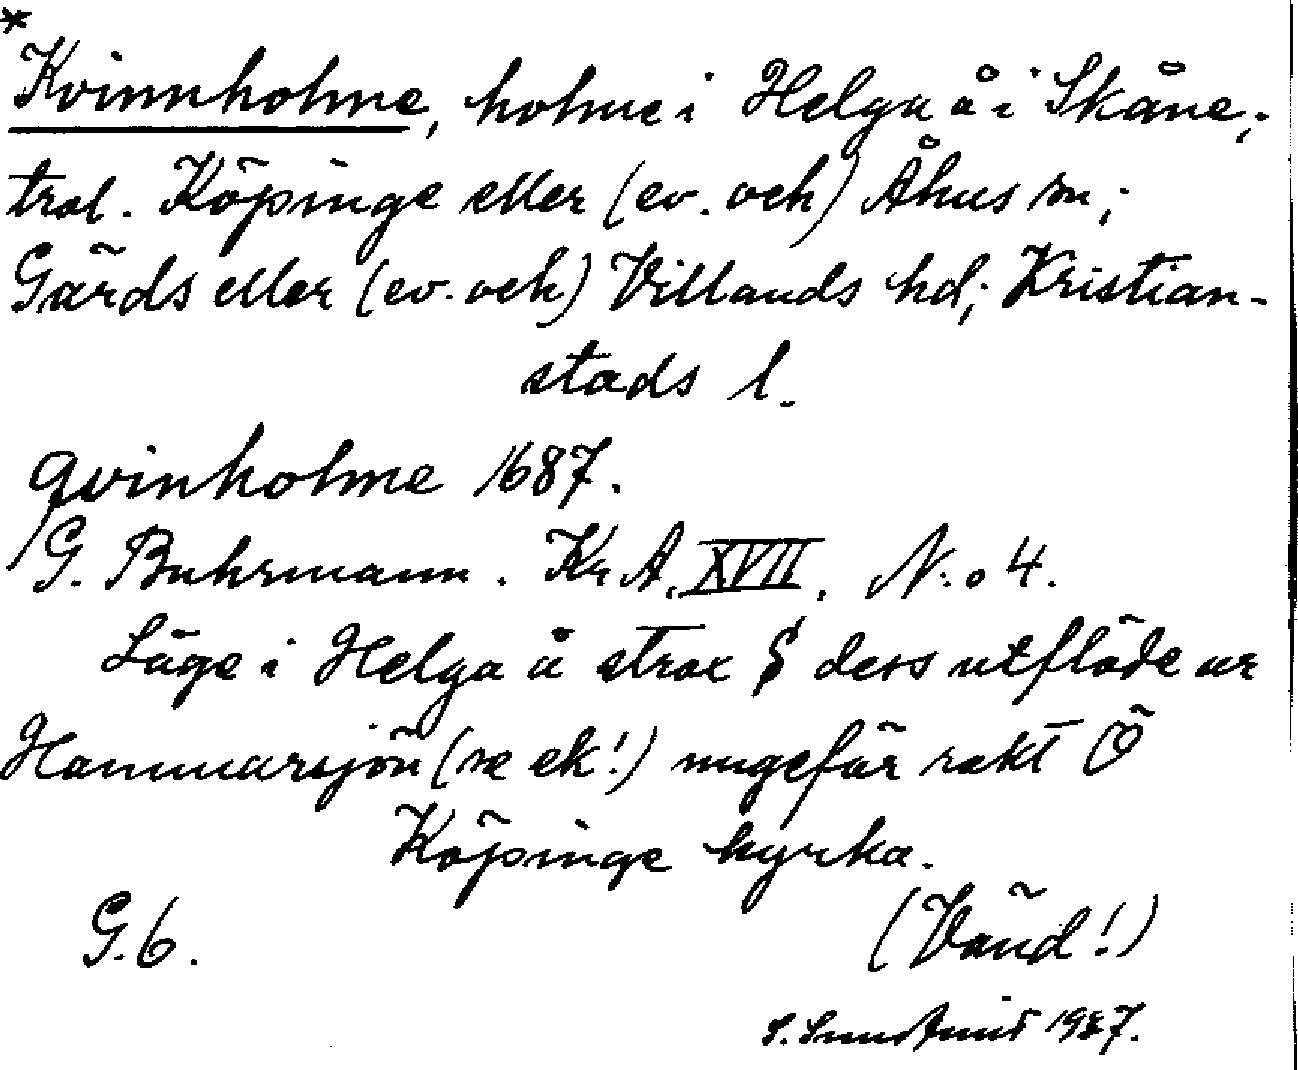 *
Kvinnholme, holme i Helga å i Skåne;
trol. Köpinge eller (ev. och) Åhus sn;
Gärds eller (ev. och) Villands hd; Kristian-
stads l.
qvinholme 1687.
G. Buhrmann. Kr. A. XVII, N:o 4.
Läge i Helga å strax S dess utflöde ur
Hammarsjön (se ek!) ungefär rakt Ö
Köpinge kyrka.
G. 6. (Vänd!)